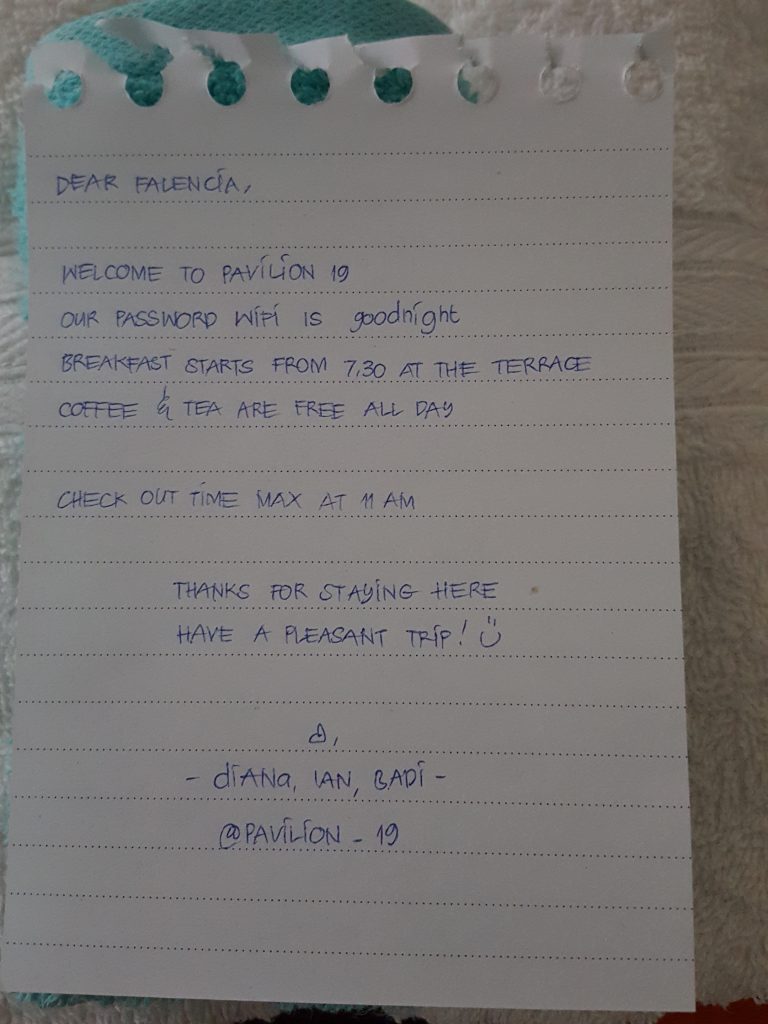 DEAR FALENCIA,
WELCOME TO PAVILION 19
OUR PASSWORD WIFI IS goodnight
BREAKFAST STARTS FROM 7.30 AT THE TERRACE
COFFEE & TEA ARE FREE ALL DAY
CHECK OUT TIME MAX AT 11 AM
THANKS FOR STAYING HERE
HAVE A PLEASANT TRIP! :)
♡,
- diANa, IAN, BADI -
@PAVILION_19